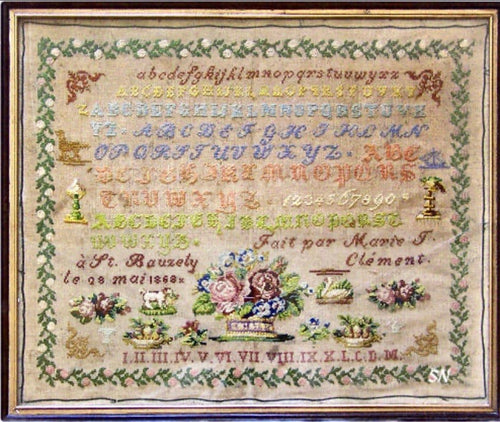 abcdefghijklmnopqrstuvwxyz
ABCDEFGHIJKLMNOPQRSTUVWXYZ
ABCDEFGHIJKLMNOPQRSTUVX
YZ. ABCDEFGHIJKLMN
OPQRSTUVWXYZ. ABC
DEFGHIJKLMNOPQRS
TUVWXYZ. 1234567890
ABCDEFGHIJKLMNOPQRST
UVWXYZ. Fait par Marie T.
à St. Bauzely Clément.
le 28 mai 1868
I. II. III. IV. V. VI. VII VIII. IX. X. L. C. D. M.
SN